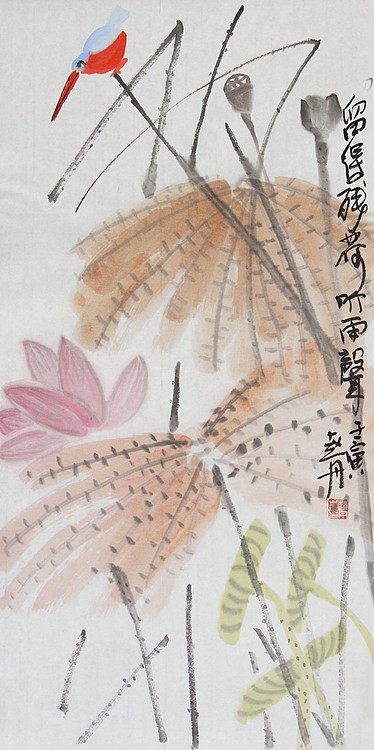 留得残荷听雨聲 壬寅
丹